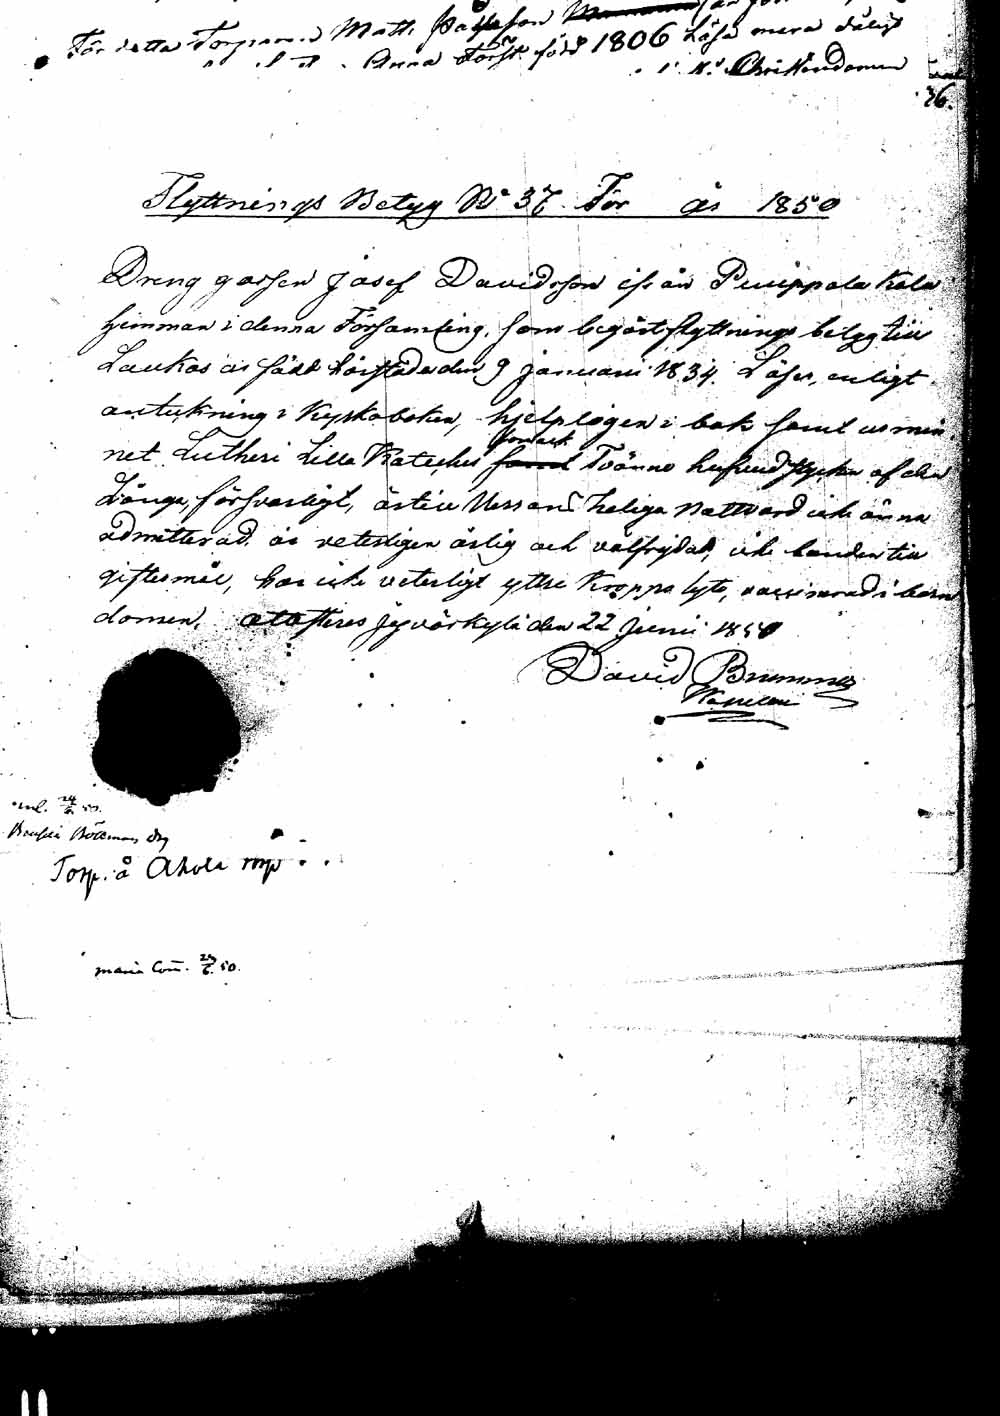 För detta Torparen Matts
Anna född 1806 Läser mera dåligt
Christendomen
36.
Flyttnings Betyg No 37. För år 1850
Dreng gossen Josef Davidsson ifrån Puuppola Kala
hemman i denna Församling, som begärt flyttnings betyg till
Laukas är född härstädes den 9 Januari 1834. Läser, enligt
anteckning i Kyrkoboken, hjelpligen i bok samt ur min
net Lutheri Lilla Kateches jemte Tvänne hufvudstycken af den
Långa, försvarligt, är till Herrans heliga Nattvard icke ännu
admitterad, är veterligen ärlig och välfrejdad, icke bunden till
giftermål, har icke veterligt yttre Kropps lyte, vaccinerad i barn
domen, attesteras Jyväskylä den 22 Junii 1850
David Brummer
Kapellan
Torp. å Ahola
24/6 50.